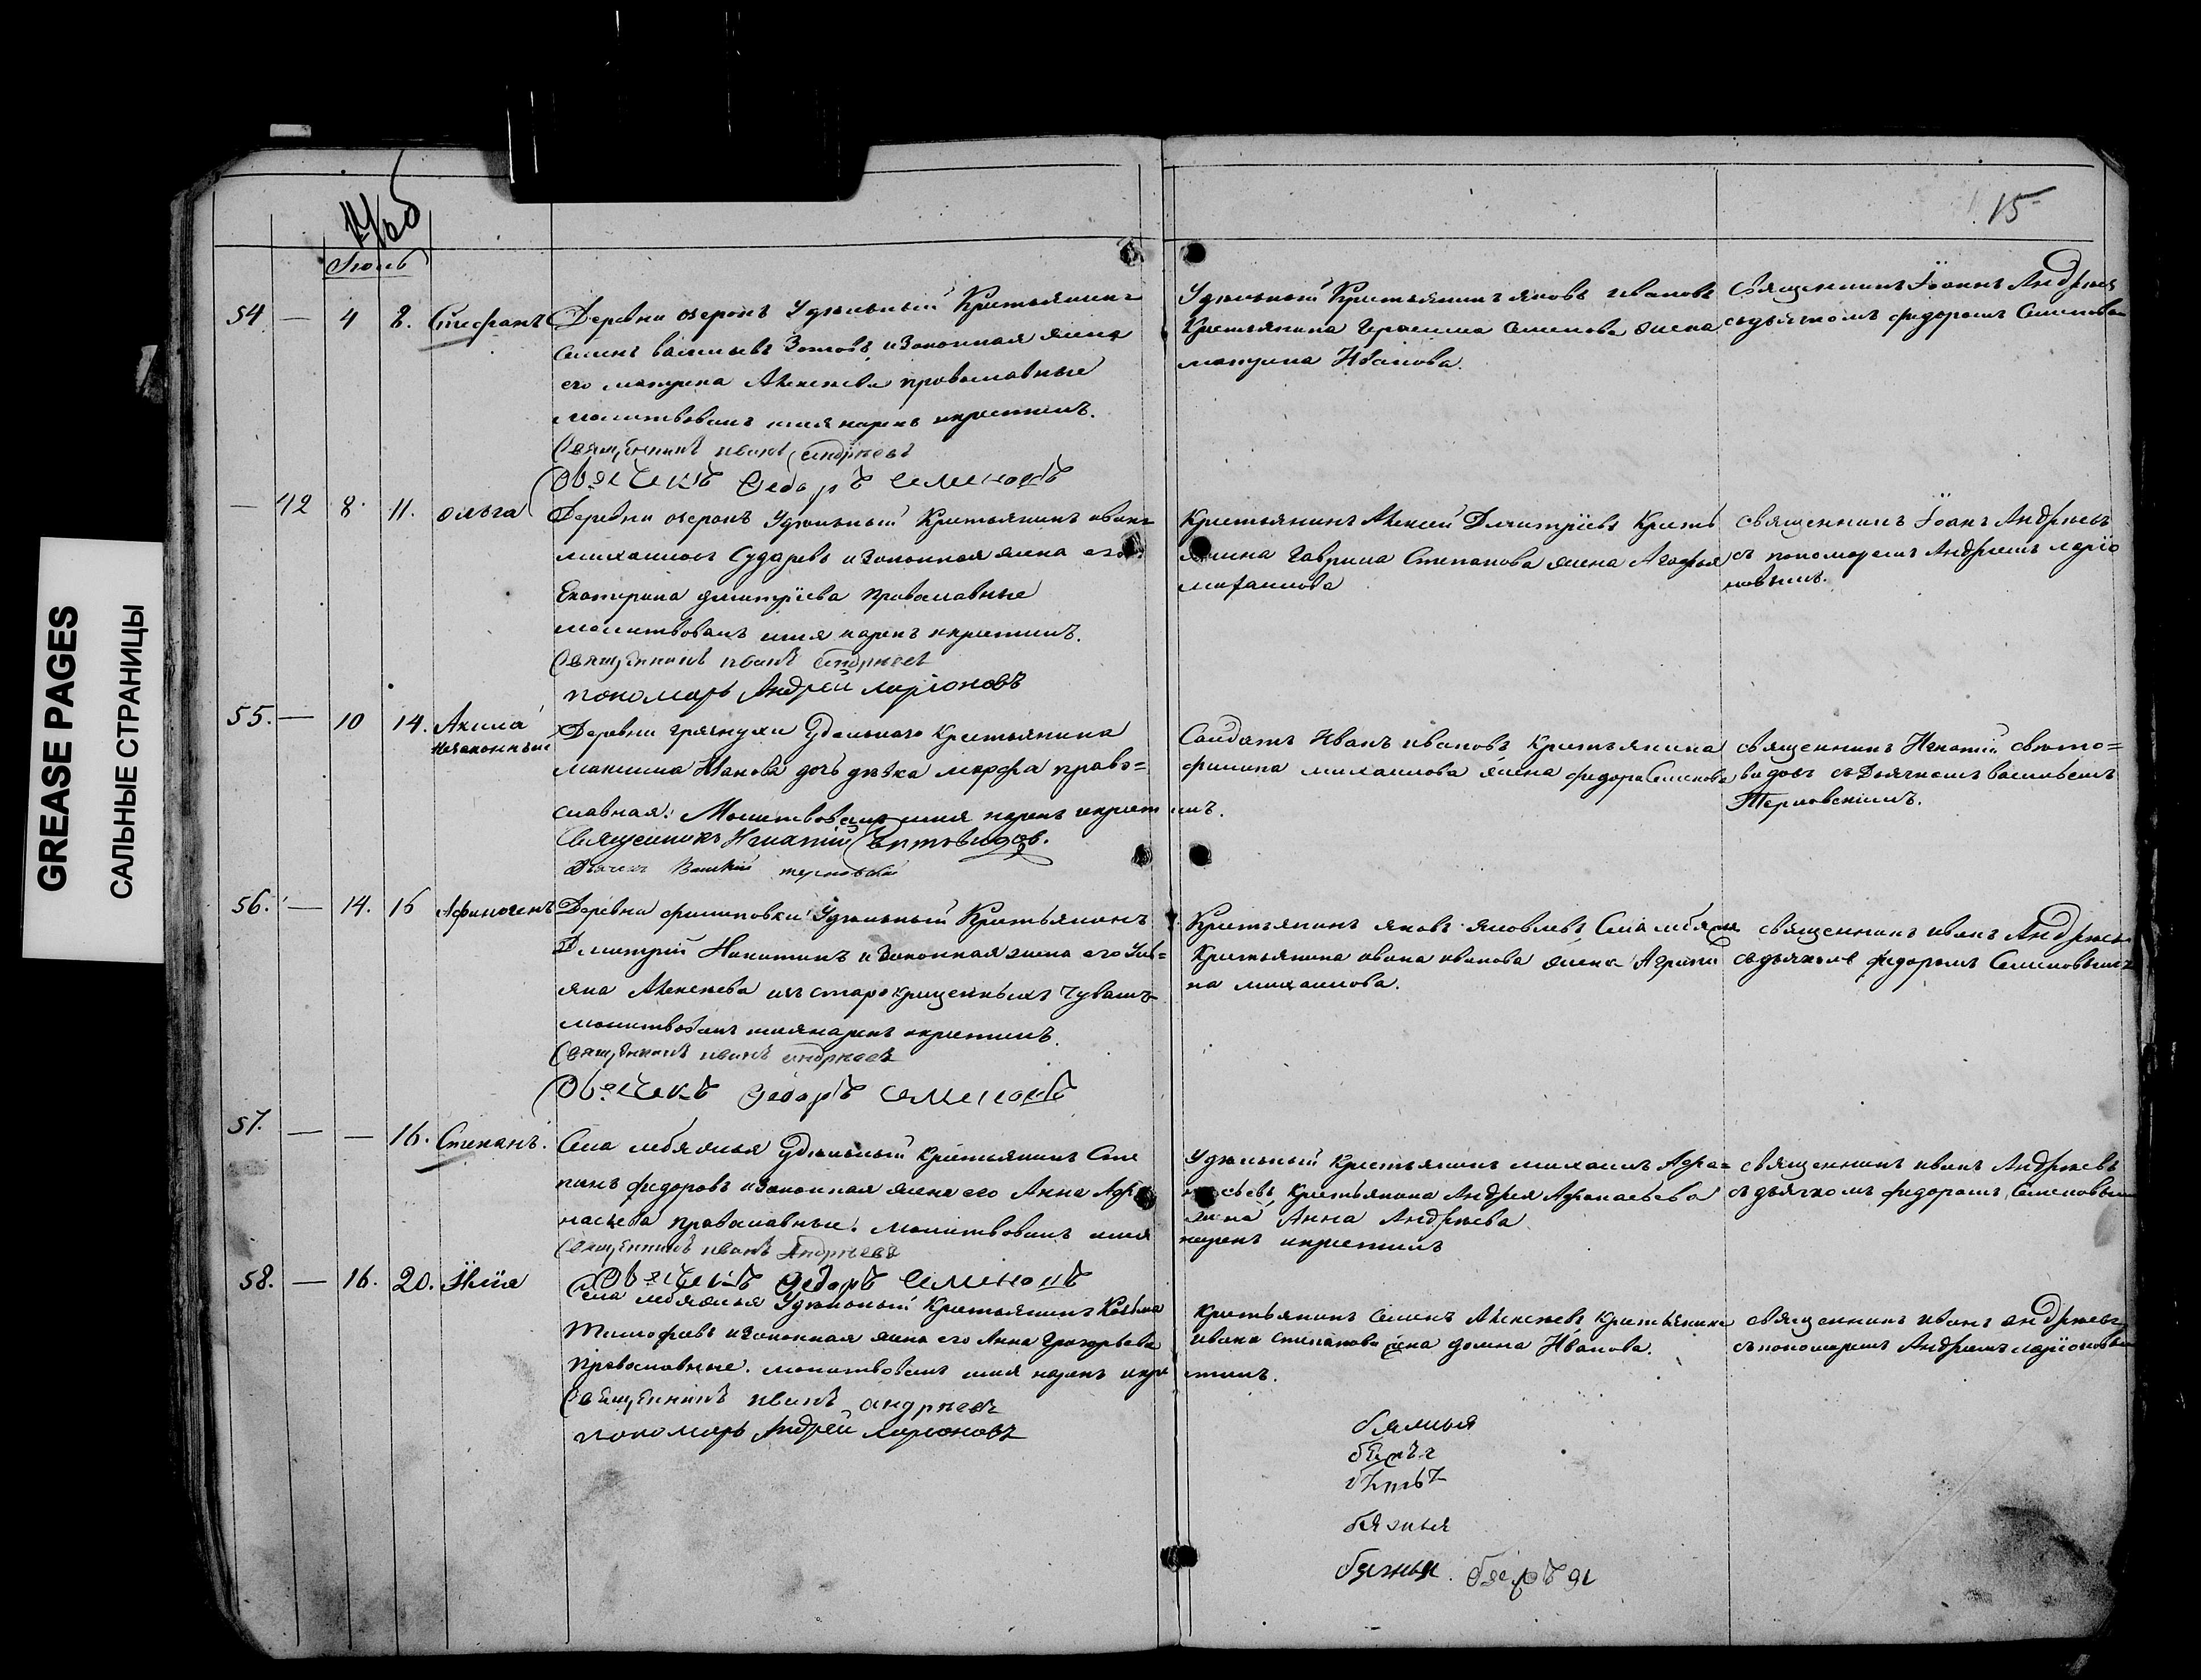 GREASE PAGES
САЛЬНЫЕ СТРАНИЦЫ
15
Іюль
54 — 4 8. Стефанъ
Деревни озерокъ Удѣльный Крестьянинъ
Семенъ васильевъ Зотовъ изаконная жена
его матрена Алексѣева православные
молитвовалъ имя нарекъ икрестилъ.
Священникъ иванъ андрѣевъ
Дьячекъ Федоръ семеновъ
Удѣльный Крестьянинъ яковъ ивановъ
Крестьянина Герасима Семенова жена
матрена Иванова.
Священникъ Іоаннъ Андрѣевъ
съдьячкомъ федоромъ Семеновым
— 42 8. 11. ольга
Деревни озерокъ Удѣльный Крестьянинъ иванъ
михаиловъ Сударевъ изаконная жена его
Екатерина дмитріева Православные
молитвовалъ имя нарекъ икрестилъ.
Священникъ иванъ андрѣевъ
пономарь Андрей ларіоновъ
Крестьянинъ Алексей Дмитріевъ Кресть
янина Гаврила Степанова жена Агафья
михаилова
священникъ Іоанъ Андрѣевъ
съ пономаремъ Андреемъ ларіо
новымъ.
55. — 10 14. Акила
Незаконный
Деревни грязнухи Удельнаго Крестьянина
максима Иванова дочь дѣвка марфа право=
славная. Молитвовалъ имя нарекъ икрестилъ.
Священникъ Игнатій Святовидов.
Дьячекъ Василій терновскій
Салдатъ Иванъ ивановъ Крестьянина
филипа михаилова жена федора Семенова
священникъ Игнатій свято=
видовъ съ Дьячкомъ васильемъ
Терновскимъ.
56. — 14. 16 Афиногенъ
Деревни филиповки Удѣльный Крестьянинъ
Дмитрій Никитинъ изаконная жена его Уль=
яна Алексѣева изъ старокрещенныхъ Чувашъ
молитвовалъ имянарекъ икрестилъ.
Священникъ иванъ андрѣевъ
Дьячекъ Федоръ семеновъ
Крестьянинъ яковъ яковлевъ Села лебяжья
Крестьянина ивана иванова жена Афрози
на михаилова.
священникъ иванъ Андрѣевъ
съдьячкомъ федоромъ Семеновымъ
57. — — 16. Степанъ.
Села лебяжья Удѣльный Крестьянинъ Сте
панъ федоровъ изаконная жена его Анна Афа
насьева православные. молитвовалъ имя
нарекъ икрестилъ
Священникъ иванъ Андрѣевъ
Дьячекъ Федоръ Семеновъ
Удѣльный Крестьянинъ михаилъ Афа=
насьевъ, Крестьянина Андрея Афанасьева
жена Анна Андрѣева
священникъ иванъ Андрѣевъ
съ дьячкомъ федоромъ Семеновым
58. — 16. 20. Илія
Села лебяжья Удѣльный Крестьянинъ Козьма
Тимофѣевъ изаконная жена его Анна Григорьева
Православные. молитвовалъ имя нарекъ икрестилъ.
Священникъ иванъ андрѣевъ
пономарь Андрей ларіоновъ
Крестьянинъ Семенъ Алексѣевъ Крестьянина
ивана степанова жена домна Иванова.
священникъ иванъ андрѣевъ
съпономаремъ Андреемъ ларіоновым